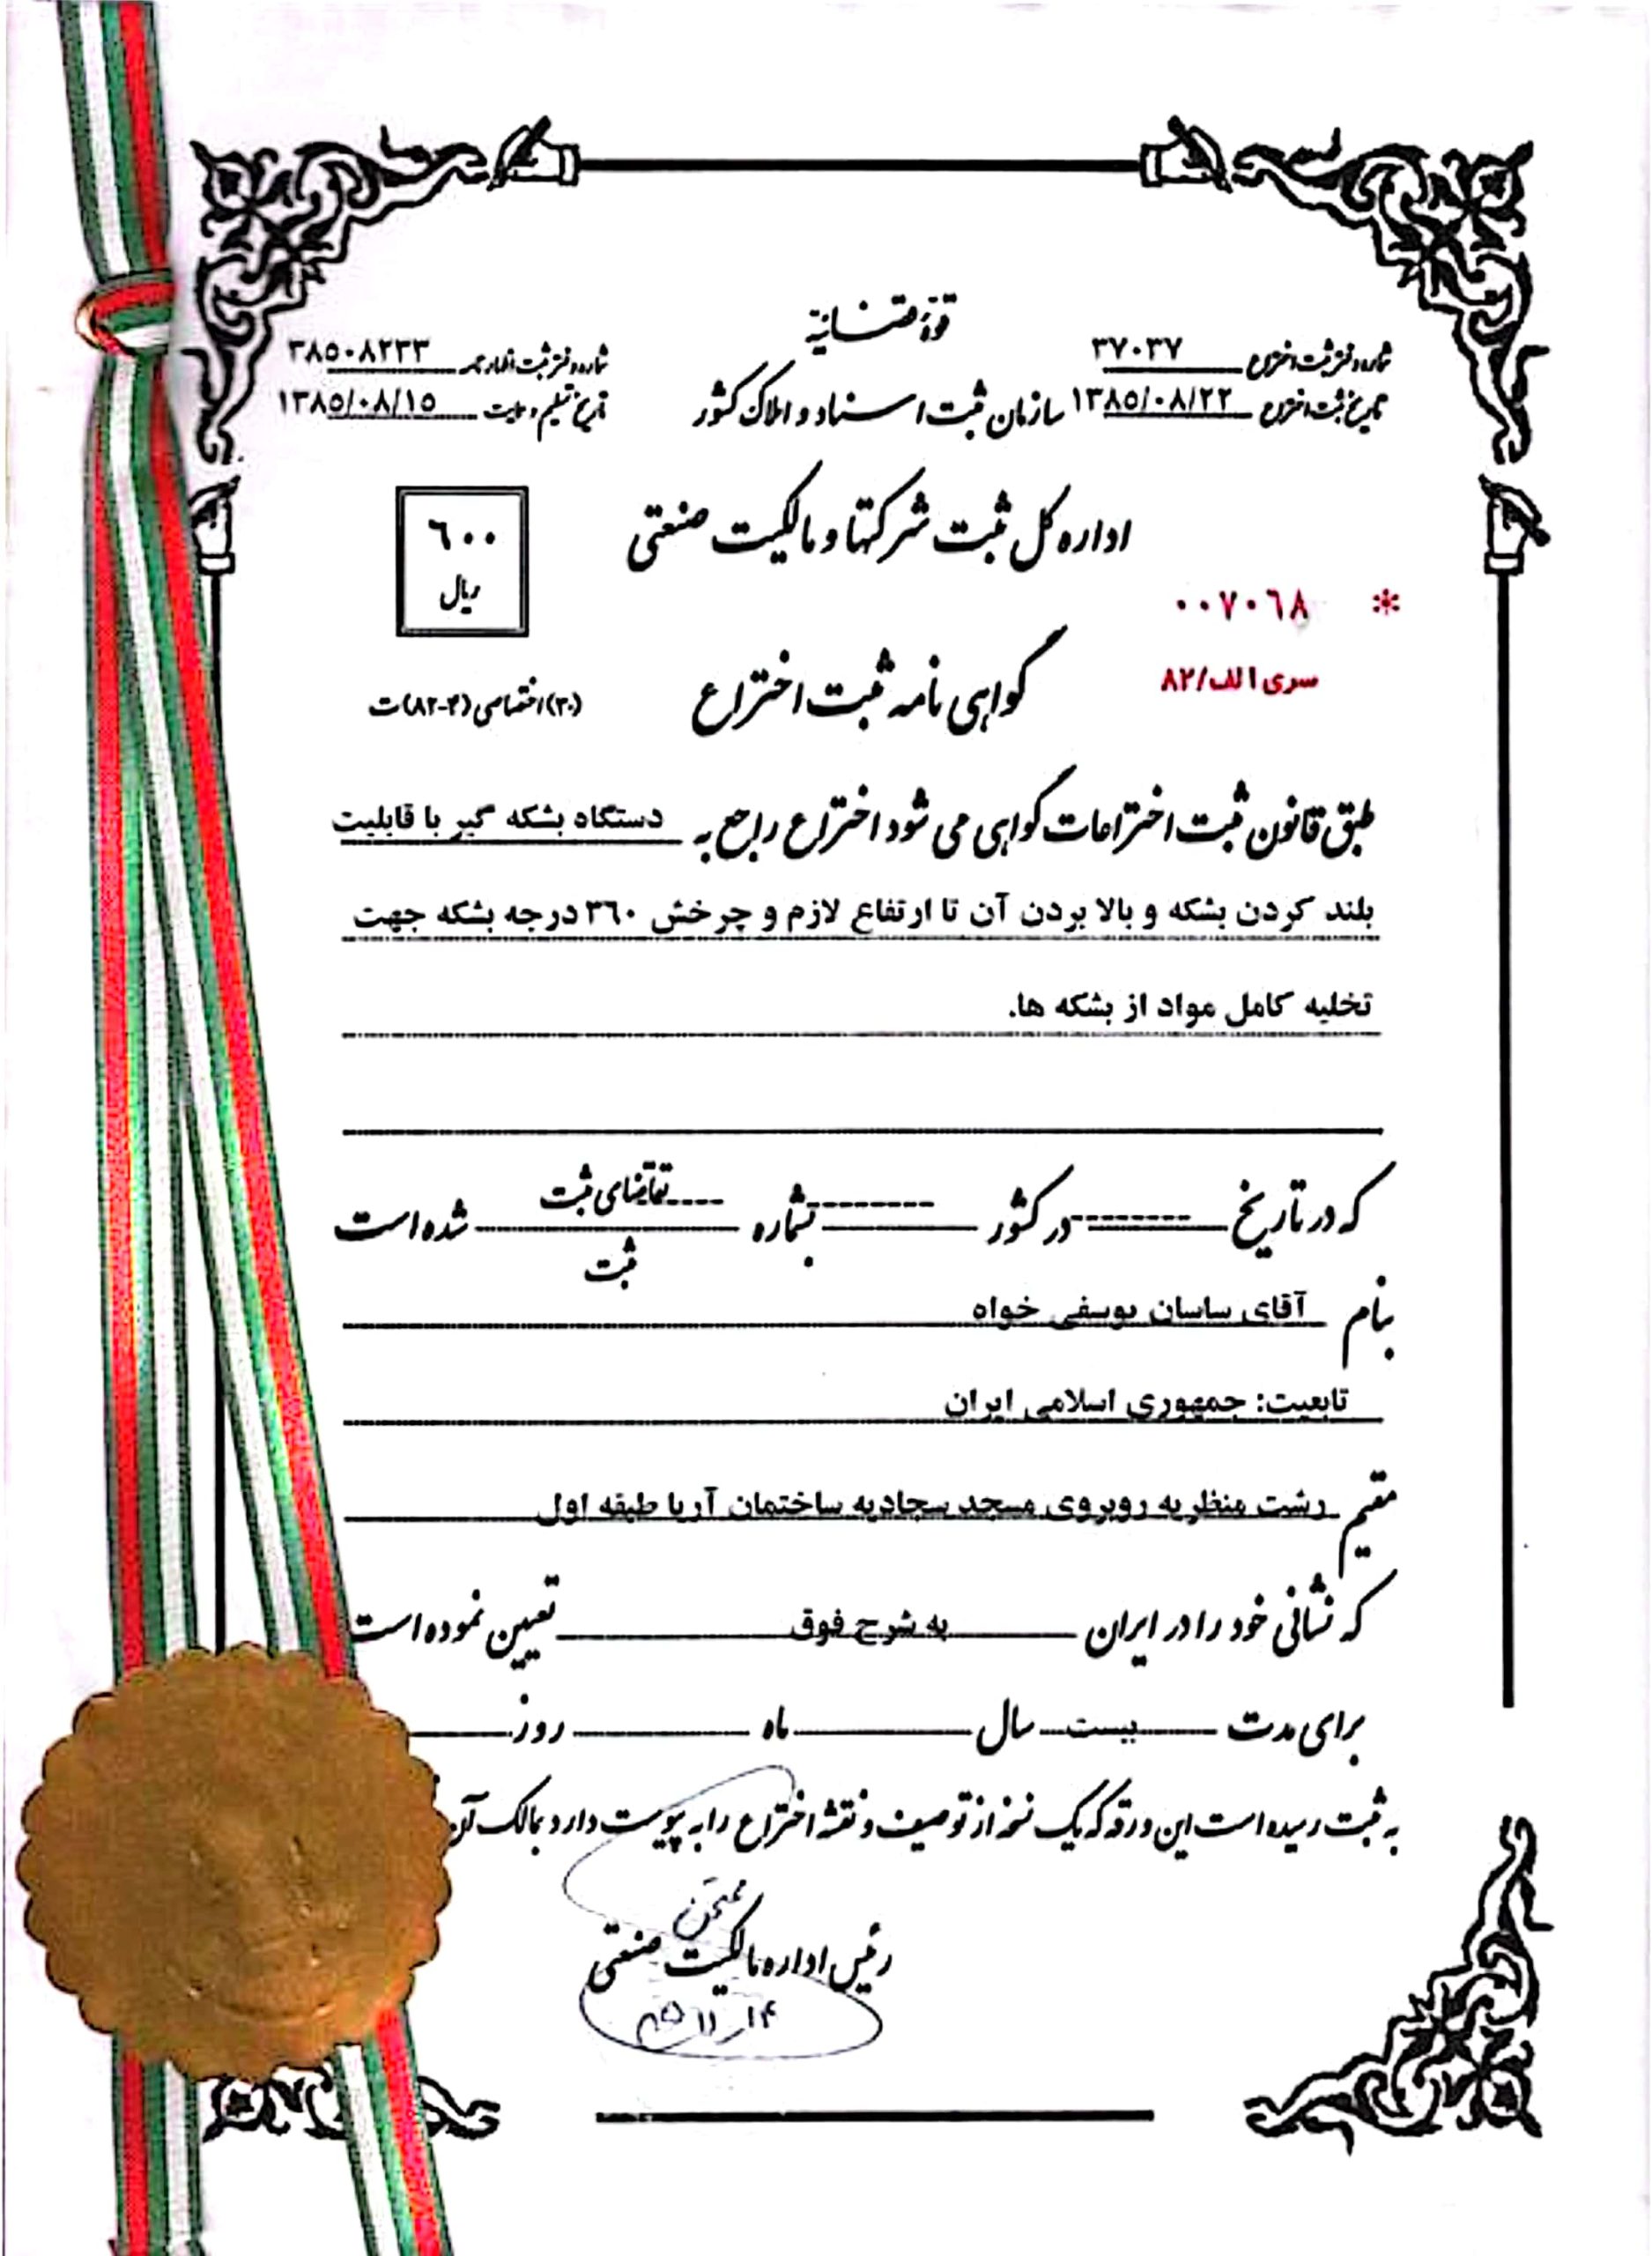 قوهٔ قضائیه
شماره دفتر ثبت اختراع ۳۷۰۳۷
سازمان ثبت اسناد و املاک کشور
تاریخ ثبت اختراع ۱۳۸۵/۰۸/۲۲
شماره دفتر ثبت اظهارنامه ۳۸۵۰۸۲۳۳
تاریخ تسلیم و روایت ۱۳۸۵/۰۸/۱۵
اداره کل ثبت شرکتها و مالکیت صنعتی
۶۰۰
ریال
* ۰۰۷۰۶۸
سری الف/۸۲
گواهی نامه ثبت اختراع
(۳۰) اختصاصی (۴-۸۲) ت
طبق قانون ثبت اختراعات گواهی می شود اختراع راجع به دستگاه بشکه گیر با قابلیت
بلند کردن بشکه و بالا بردن آن تا ارتفاع لازم و چرخش ۳۶۰ درجه بشکه جهت
تخلیه کامل مواد از بشکه ها.
که در تاریخ -------- در کشور -------- بشماره ---- تقاضای ثبت شده است
ثبت
بنام آقای ساسان یوسفی خواه
تابعیت: جمهوری اسلامی ایران
مقیم رشت منظریه روبروی مسجد سجادیه ساختمان آریا طبقه اول
که نشانی خود را در ایران به شرح فوق تعیین نموده است
برای مدت بیست سال ماه روز
به ثبت رسیده است این ورقه که یک نسخه از توصیف و نقشه اختراع را به پیوست دارد بمالک آن
رئیس اداره مالکیت صنعتی